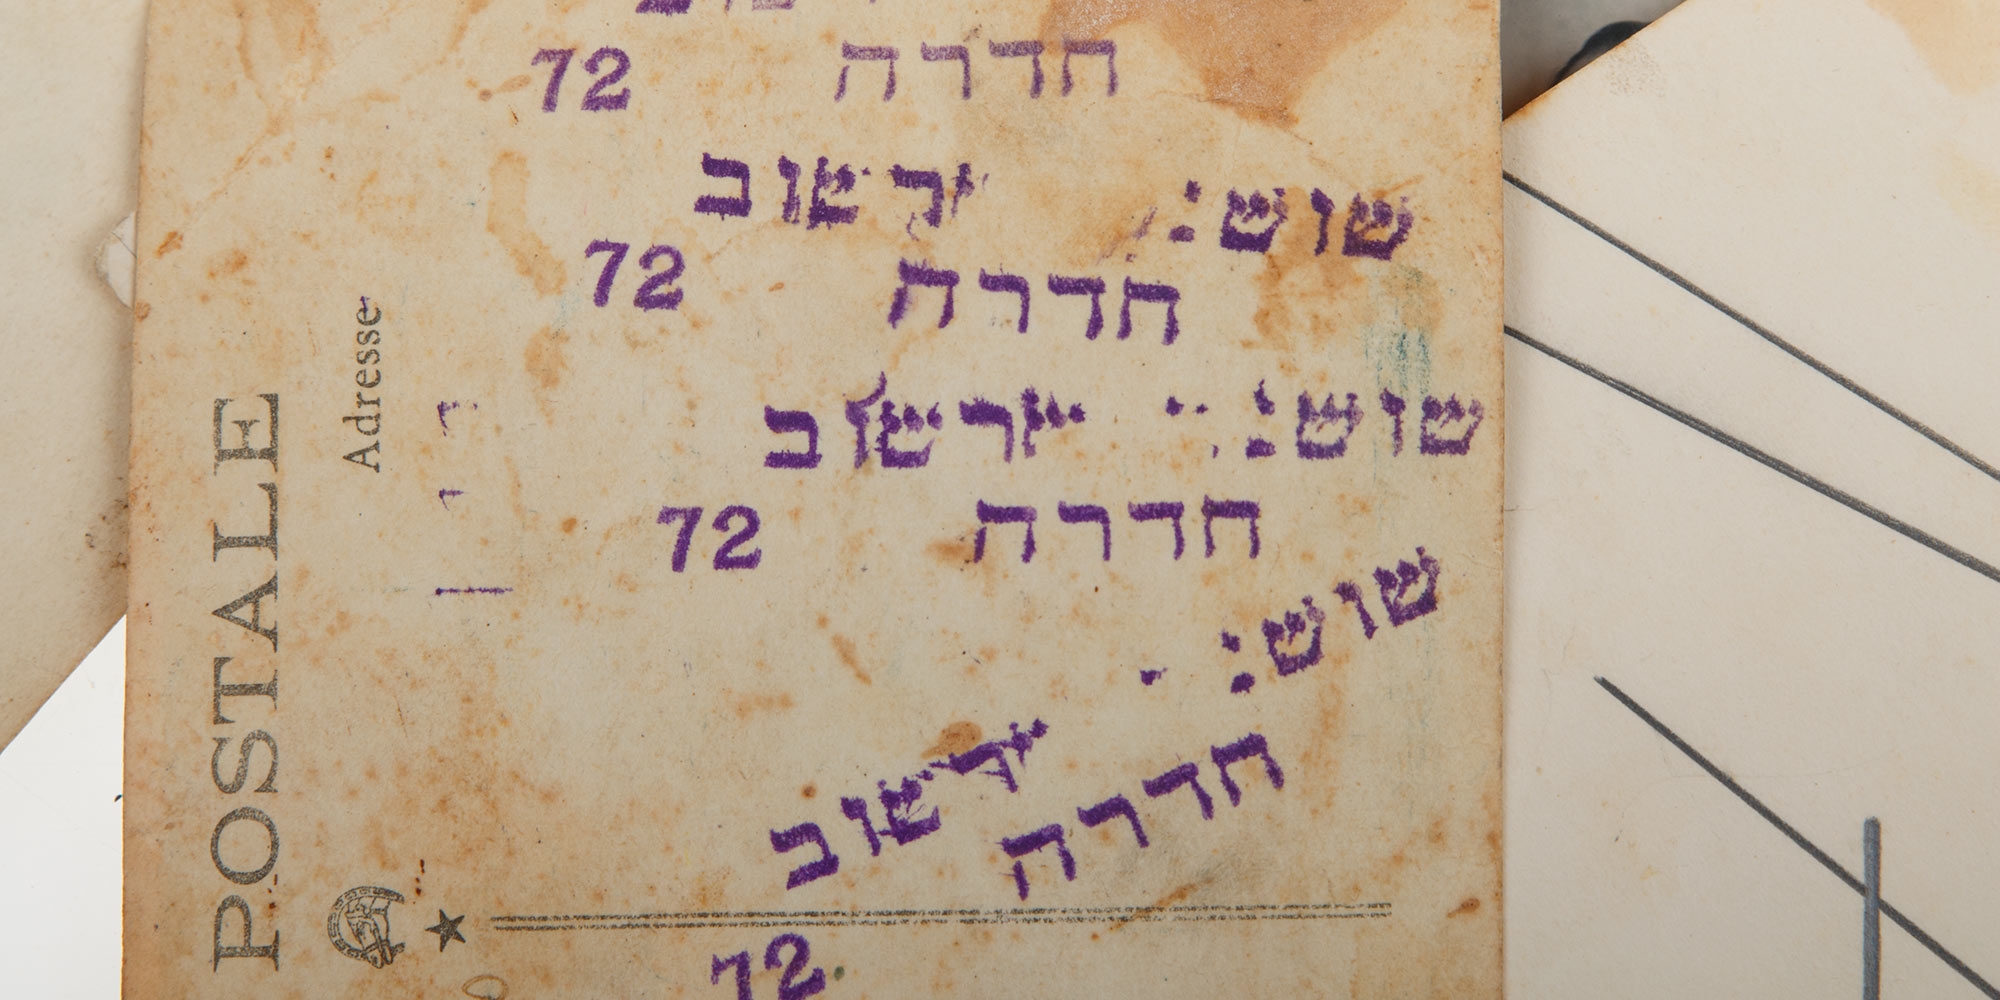 חדרה 72
שוש: ירשוב
חדרה 72
שוש: ירשוב
חדרה 72
שוש: ירשוב
חדרה
72
POSTALE
Adresse